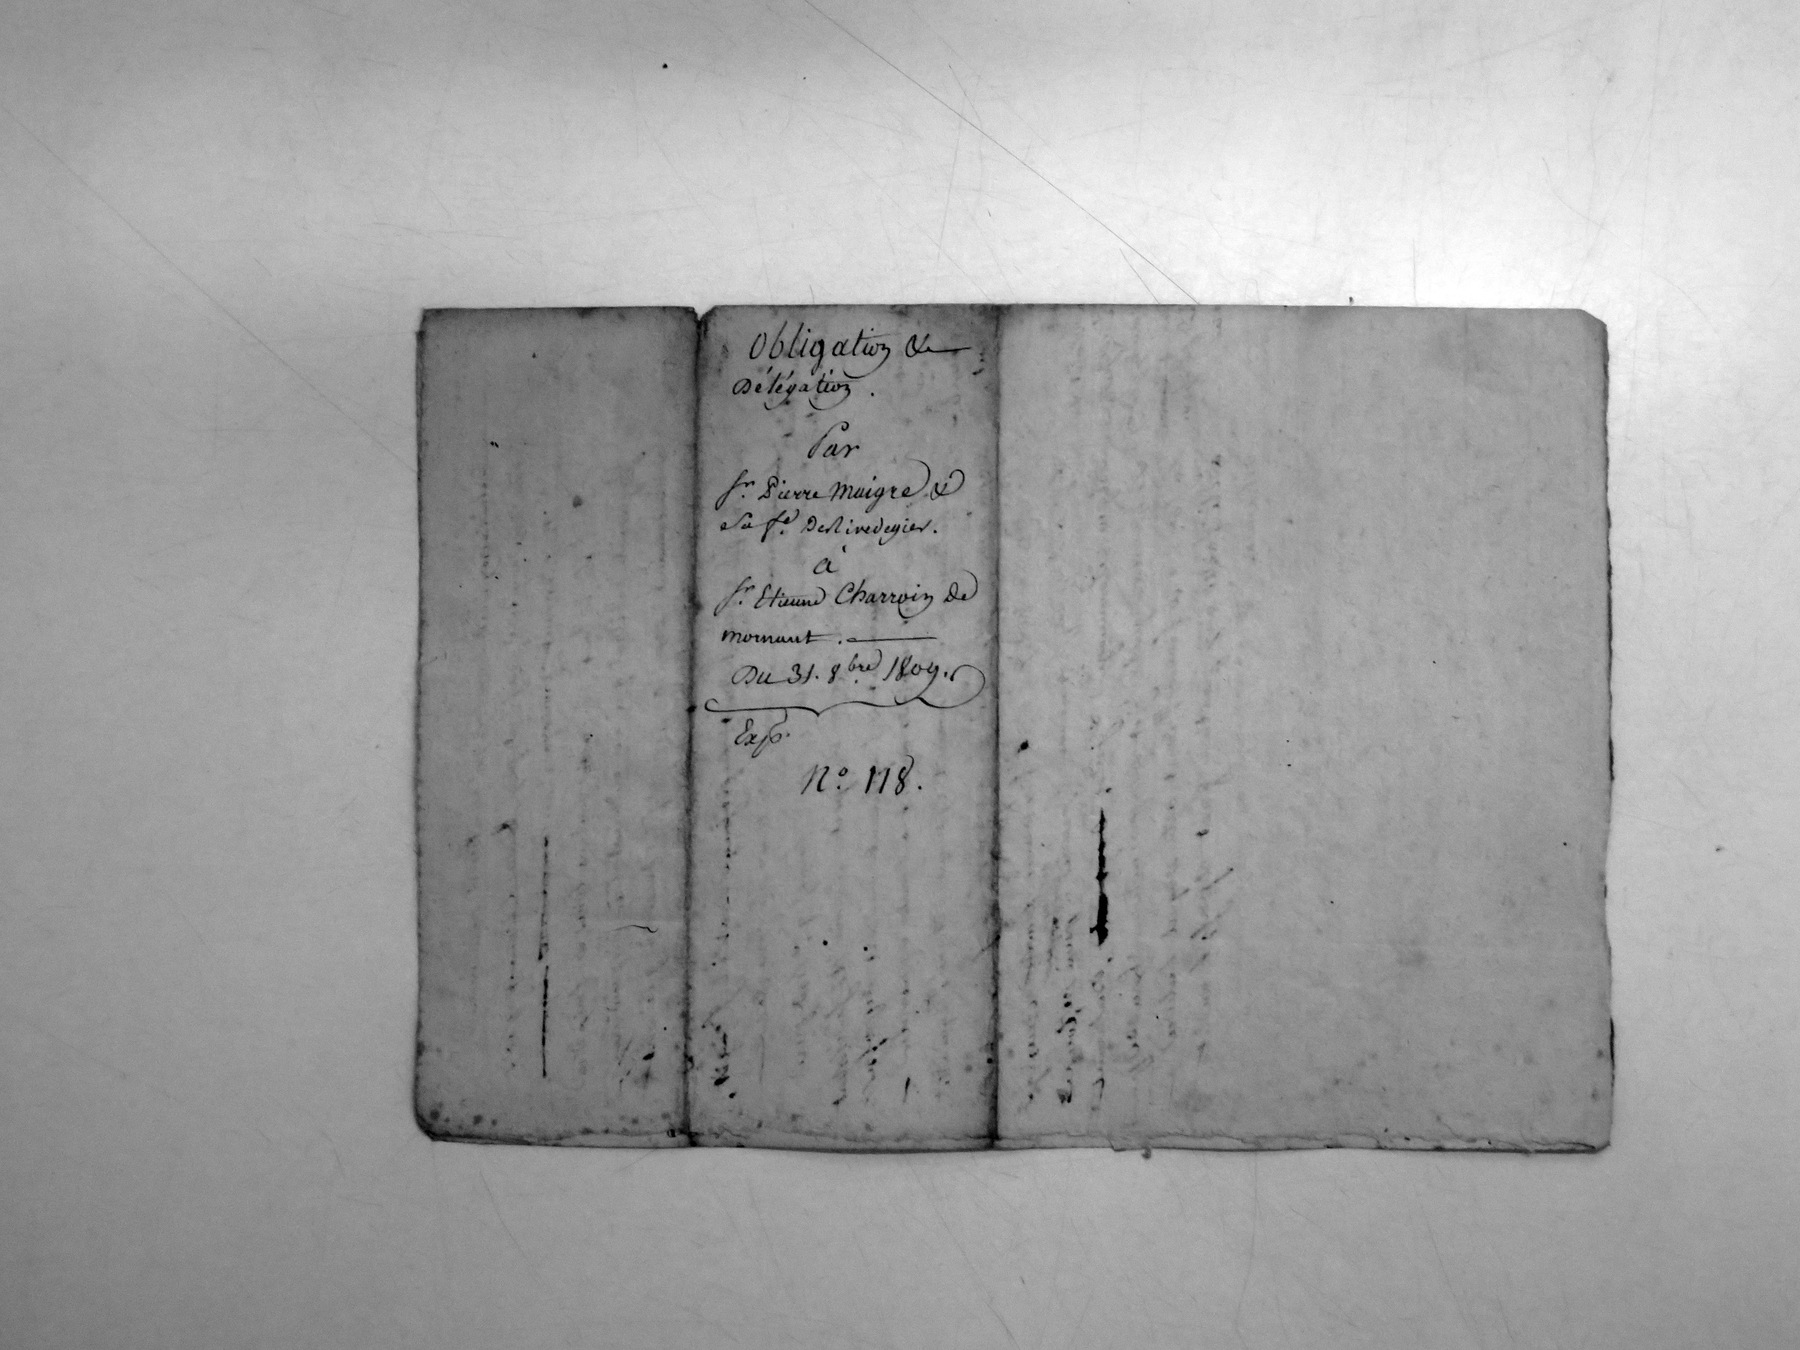 Obligation &
Délégation.
Par
Sr. Pierre Maigre &
Sa fe. De Rivedegier.
à
Sr. Etienne Charroin de
mornant.
Du 31. 8bre 1809.
Expo.
No. 118.